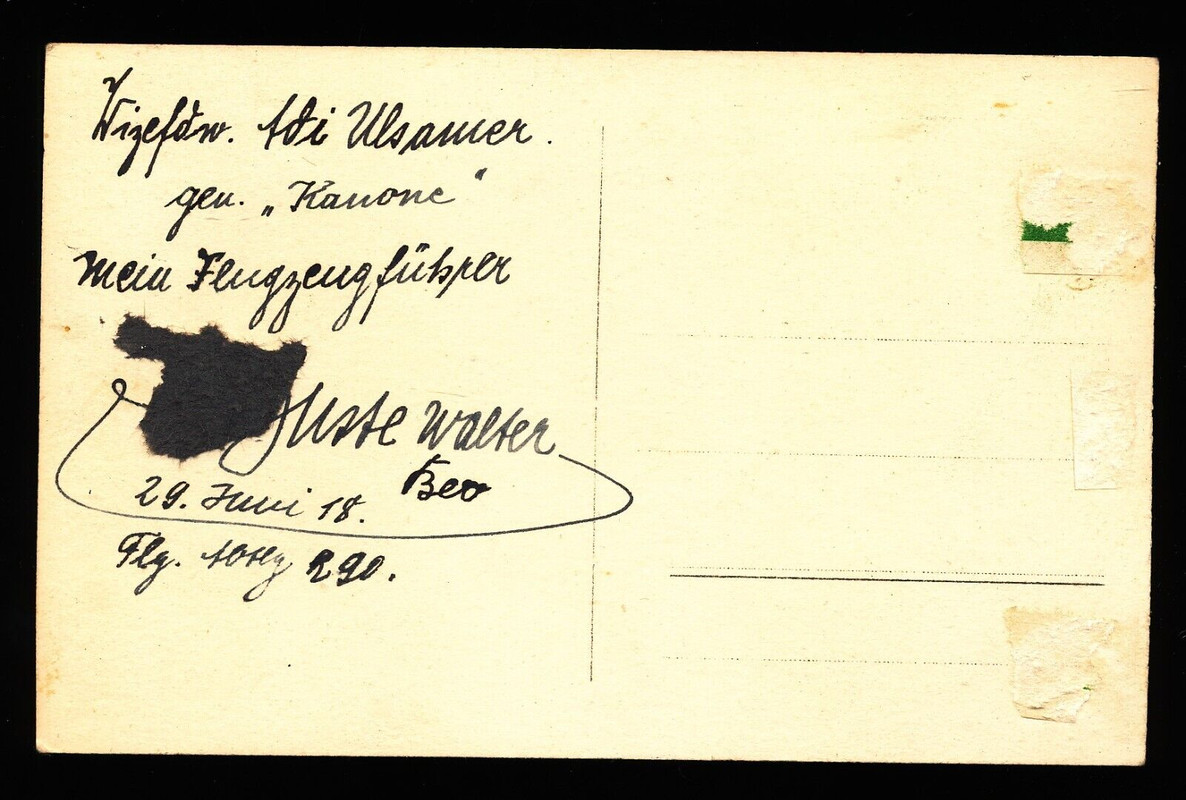 Vizefdw. Adi Ulsamer.
gen. „Kanone"
mein Flugzeugführer
Walter
Beo
29. Juni 18.
Flg. Abtlg 290.